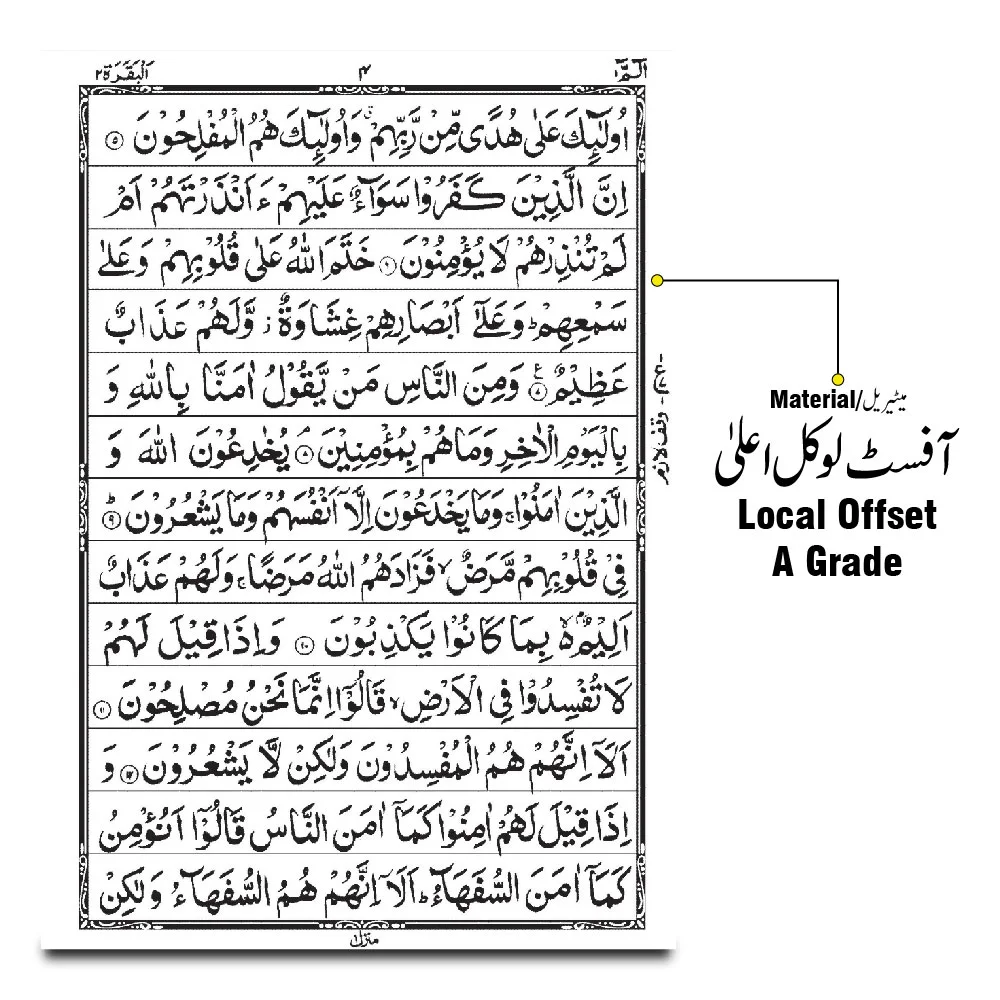 الٓمّٓ ۱ ۴ اَلْبَقَرَة ۲
اُولٰٓئِكَ عَلٰى هُدًى مِّنْ رَّبِّهِمْ ۙ وَاُولٰٓئِكَ هُمُ الْمُفْلِحُوْنَ ۝۵
اِنَّ الَّذِيْنَ كَفَرُوْا سَوَآءٌ عَلَيْهِمْ ءَاَنْذَرْتَهُمْ اَمْ
لَمْ تُنْذِرْهُمْ لَا يُؤْمِنُوْنَ ۝۶ خَتَمَ اللّٰهُ عَلٰى قُلُوْبِهِمْ وَعَلٰى
سَمْعِهِمْ ؕ وَعَلٰٓى اَبْصَارِهِمْ غِشَاوَةٌ ؗ وَّلَهُمْ عَذَابٌ
عَظِيْمٌ ۝۷ وَمِنَ النَّاسِ مَنْ يَّقُوْلُ اٰمَنَّا بِاللّٰهِ وَ
بِالْيَوْمِ الْاٰخِرِ وَمَا هُمْ بِمُؤْمِنِيْنَ ۝۸ يُخٰدِعُوْنَ اللّٰهَ وَ
الَّذِيْنَ اٰمَنُوْا ۚ وَمَا يَخْدَعُوْنَ اِلَّآ اَنْفُسَهُمْ وَمَا يَشْعُرُوْنَ ؕ۝۹
فِىْ قُلُوْبِهِمْ مَّرَضٌ ۙ فَزَادَهُمُ اللّٰهُ مَرَضًا ۚ وَلَهُمْ عَذَابٌ
اَلِيْمٌ ۢ ۙ بِمَا كَانُوْا يَكْذِبُوْنَ ۝۱۰ وَاِذَا قِيْلَ لَهُمْ
لَا تُفْسِدُوْا فِى الْاَرْضِ ۙ قَالُوْٓا اِنَّمَا نَحْنُ مُصْلِحُوْنَ ۝۱۱
اَلَآ اِنَّهُمْ هُمُ الْمُفْسِدُوْنَ وَلٰكِنْ لَّا يَشْعُرُوْنَ ۝۱۲ وَ
اِذَا قِيْلَ لَهُمْ اٰمِنُوْا كَمَآ اٰمَنَ النَّاسُ قَالُوْٓا اَنُؤْمِنُ
كَمَآ اٰمَنَ السُّفَهَآءُ ؕ اَلَآ اِنَّهُمْ هُمُ السُّفَهَآءُ وَلٰكِنْ
منزل ۱
ع
وقف لازم
Material/میٹیریل
آفسٹ لوکل اعلیٰ
Local Offset
A Grade